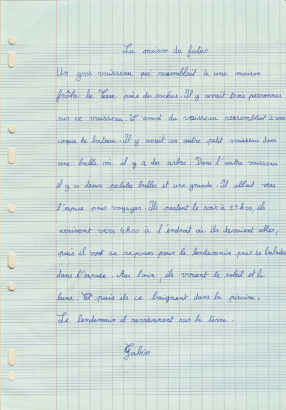 La maison du futur
Un gros vaisseau qui ressemblait à une maison
frôla la Terre près des roches. Il y avait trois personnes
sur ce vaisseau. L'avant du vaisseau ressemblait à une
coque de bateau. Il y avait un autre petit vaisseau dans
une bulle où il y a des arbre. Dans l'autre vaisseau
il y a deux petites bulles et une grande. Il allait vers
l'espace pour voyager. Ils partent le soir à 21h00, ils
arrivent vers 4h00 à l'endroit où ils devaient aller,
puis il vont se reposer pour le lendemain pour se balader
dans l'espace. Au loin, ils virent le soleil et la
lune. Et puis ils ce baignent dans la piscine.
Le lendemain il reviennent sur la terre.
Gabin